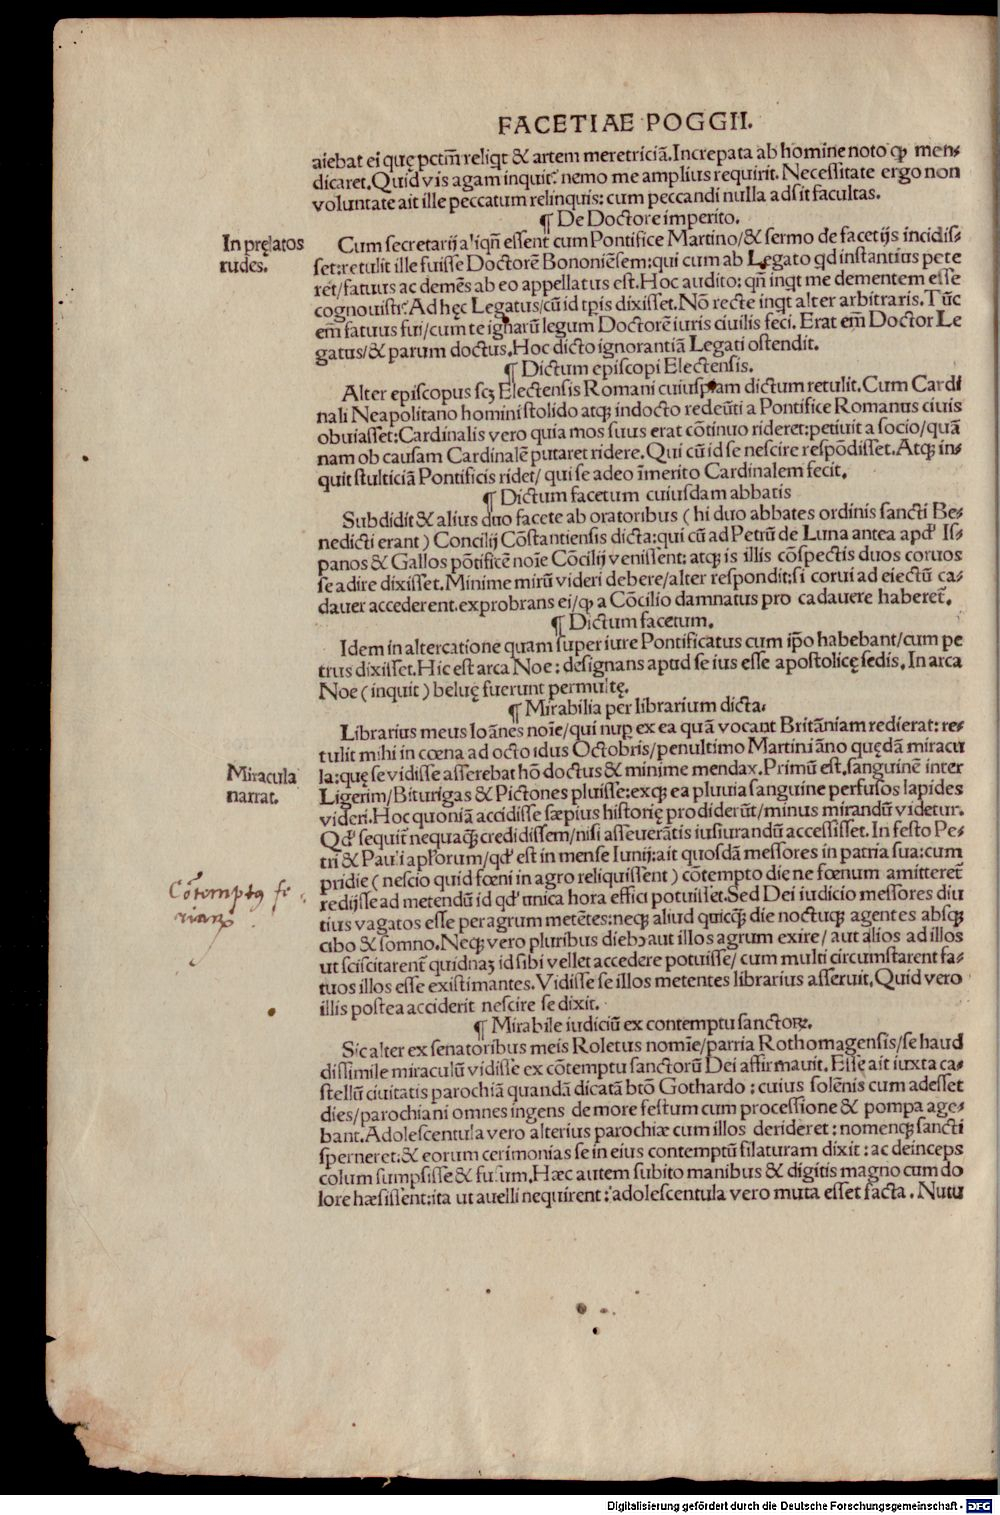 FACETIAE POGGII.
aiebat ei quę pctm̄ reliqt & artem meretriciā. Increpata ab homine noto ꝙ men-
dicaret. Quid vis agam inquit: nemo me amplius requirit. Necessitate ergo non
voluntate ait ille peccatum relinquis: cum peccandi nulla adsit facultas.
¶ De Doctore imperito.
In pręlatos
rudes.
Cum secretarij aliqn̄ essent cum Pontifice Martino/& sermo de facetijs incidis-
set: retulit ille fuisse Doctorē Bononiēsem: qui cum ab Legato qd instantius pete
ret/fatuus ac demēs ab eo appellatus est. Hoc audito: qn̄ inqt me dementem esse
cognouistis? Ad hęc Legatus/cū id tp̄is dixisset. Nō recte inqt alter arbitraris. Tūc
em̄ fatuus fui/cum te ignarū legum Doctorē iuris ciuilis feci. Erat em̄ Doctor Le
gatus/& parum doctus. Hoc dicto ignorantiā Legati ostendit.
¶ Dictum episcopi Electensis.
Alter episcopus scꝫ Electensis Romani cuiuspiam dictum retulit. Cum Cardi
nali Neapolitano homini stolido atqꝫ indocto redeūti a Pontifice Romanus ciuis
obuiasset: Cardinalis vero quia mos suus erat cōtinuo rideret: petiuit a socio/quā
nam ob causam Cardinalē putaret ridere. Qui cū id se nescire respōdisset. Atqꝫ in-
quit stulticiā Pontificis ridet/ qui se adeo īmerito Cardinalem fecit.
¶ Dictum facetum cuiusdam abbatis
Subdidit & alius duo facete ab oratoribus ( hi duo abbates ordinis sancti Be-
nedicti erant ) Concilij Cōstantiensis dicta: qui cū ad Petrū de Luna antea apd' Is-
panos & Gallos pōtificē noīe Cōcilij venissent: atqꝫ is illis cōspectis duos coruos
se adire dixisset. Minime mirū videri debere/alter respondit: si corui ad eiectū ca-
dauer accederent. exprobrans ei/ꝙ a Cōcilio damnatus pro cadauere haberet̄.
¶ Dictum facetum.
Idem in altercatione quam super iure Pontificatus cum ip̄o habebant/cum pe
trus dixisset. Hic est arca Noe: designans apud se ius esse apostolicę sedis. In arca
Noe ( inquit ) beluę fuerunt permultę.
¶ Mirabilia per librarium dicta.
Librarius meus Ioānes noīe/qui nuꝑ ex ea quā vocant Britāniam redierat: re-
tulit mihi in cœna ad octo idus Octobris/penultimo Martini āno quędā miracu
Miracula
narrat.
la: quę se vidisse asserebat hō doctus & minime mendax. Primū est, sanguinē inter
Ligerim/Biturigas & Pictones pluisse: exqꝫ ea pluuia sanguine perfusos lapides
videri. Hoc quoniā accidisse sæpius historię prodiderūt/minus mirandū videtur.
Qd' sequit̄ nequaqꝫ credidissem/nisi asseuerātis iusiurandū accessisset. In festo Pe-
tri & Pauli apl'orum/qd' est in mense Iunij: ait quosdā messores in patria sua: cum
pridie ( nescio quid fœni in agro reliquissent ) cōtempto die ne fœnum amitteret̄
Cōtemptꝰ fe
riaꝝ
redijsse ad metendū id qd' unica hora effici potuisset. Sed Dei iudicio messores diu
tius vagatos esse per agrum metētes: neqꝫ aliud quicqꝫ die noctuqꝫ agentes absqꝫ
cibo & somno. Neqꝫ vero pluribus dieb⁹ aut illos agrum exire/ aut alios ad illos
ut sciscitarent̄ quidnaꝫ id sibi vellet accedere potuisse/ cum multi circumstarent fa-
tuos illos esse existimantes. Vidisse se illos metentes librarius asseruit. Quid vero
illis postea acciderit nescire se dixit.
¶ Mirabile iudiciū ex contemptu sanctoꝝ.
Sic alter ex senatoribus meis Roletus nomīe/patria Rothomagensis/se haud
dissimile miraculū vidisse ex cōtemptu sanctorū Dei affirmauit. Esse ait iuxta ca-
stellū ciuitatis parochiā quandā dicatā btō Gothardo: cuius solēnis cum adesset
dies/parochiani omnes ingens de more festum cum processione & pompa age-
bant. Adolescentula vero alterius parochiæ cum illos derideret: nomenqꝫ sancti
sperneret: & eorum cerimonias se in eius contemptū filaturam dixit: ac deinceps
colum sumpsisse & fusum. Hæc autem subito manibus & digitis magno cum do
lore hæsissent: ita ut auelli nequirent: adolescentula vero muta esset facta. Nutu
Digitalisierung gefördert durch die Deutsche Forschungsgemeinschaft - DFG